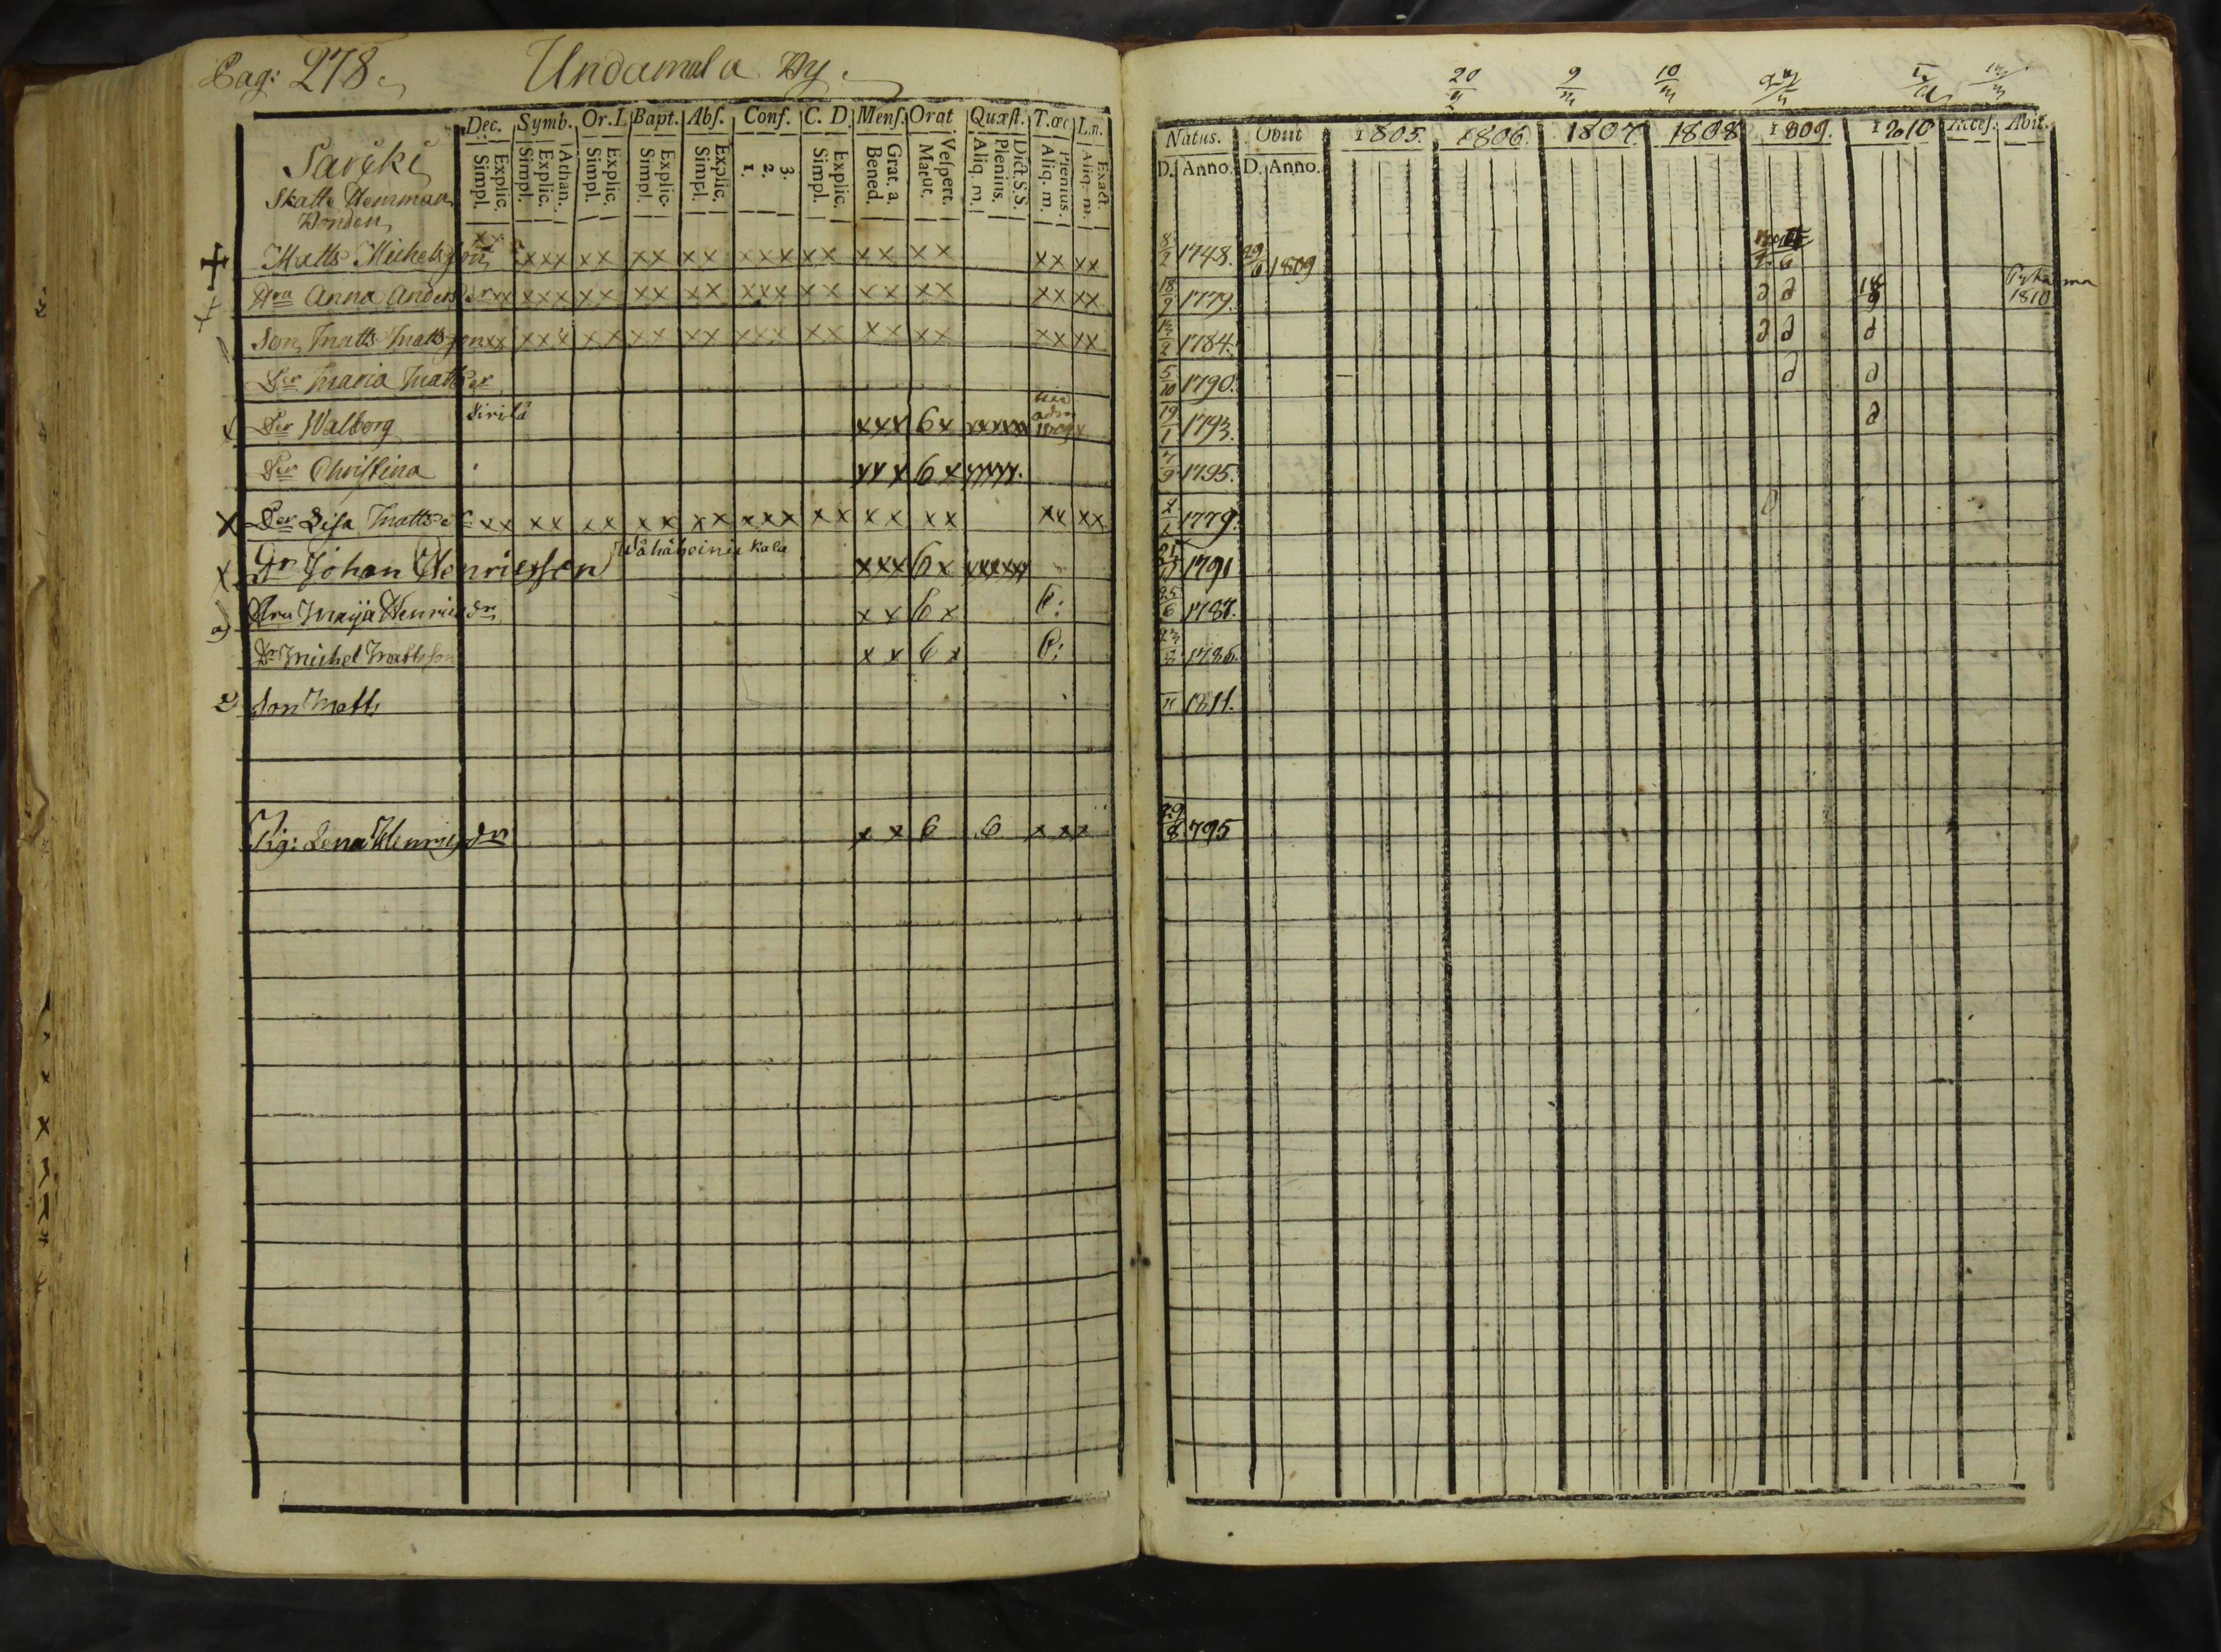 Pag: 278. Undamala By.
Dec. Symb. Or. I. Bapt. Abſ. Conf. C. D. Menſ. Orat Quæſt. T. œc L. n.
Explic. Simpl. Athan. Explic. Simpl. Explic. Simpl. Explic. Simpl. Explic. Simpl. 3. 2. 1. Explic. Simpl. Grat. a. Bened. Veſpert. Matut. Dict. S. S. Plenius. Aliq. m. Plenius. Aliq. m. Exact. Aliq. m.
Skatte Hemman
Bonden
Matts Michelsson xx xxx xx xx xx xxx xx xx xx xx xx
Hru Anna Andersdr xx xxx xx xx xx xxx xx xx xx xx xx
Son Matts Mattsson xx xxx xx xx xx xxx xx xx xx xx xx
Der Maria Matsdr
Der Walborg xxx 6x xxxxx
Der Christina xxx 6x xxxxx.
x Der Lisa Matts dr xx xx xx xx xx xxx xx xx xx xx xx
x Johan Henricsson xxx 6x xxxxx
Hru Maija Henricsdr xx 6x 6:
Michel Mattsson xx 6x 6:
2) Son Matts
Pig: Lena Henricsdr xx 6 6 xxx
20 9 10
Natus. Obiit 1805. 1806. 1807. 1808 1809. 1810 Acceſ. Abit.
D. Anno. D. Anno.
8/2 1748. 29/6 1809
18/9 1779. 18/9 1810
1784.
5/10 1790.
19/1 1793.
7/9 1795.
1779.
1791
25/6 1787.
1786.
1811.
29/8 795